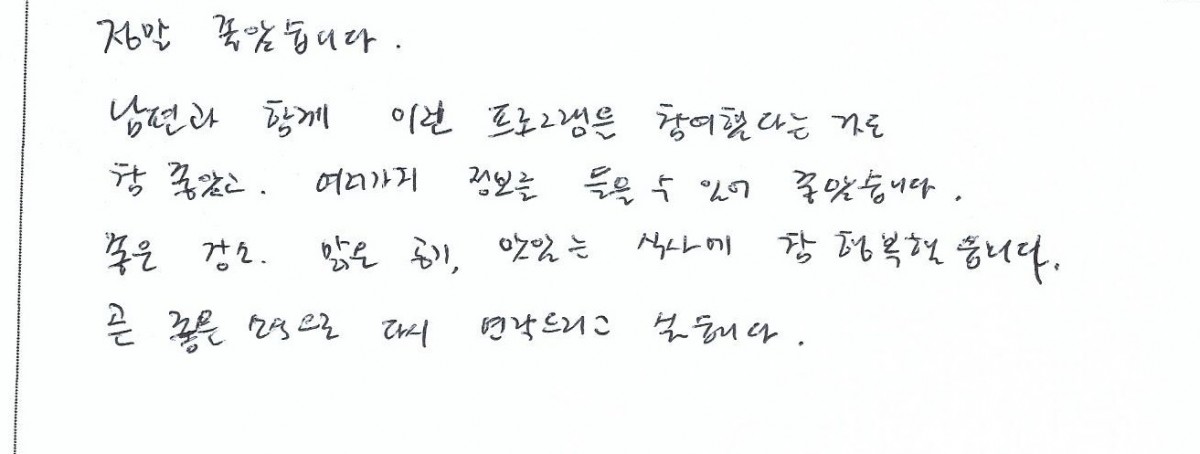 정말 좋았습니다.
남편과 함께 이런 프로그램을 참여했다는 것도
참 좋았고. 여러가지 정보를 들을 수 있어 좋았습니다.
좋은 장소. 맑은 공기, 맛있는 식사에 참 행복했습니다.
곧 좋은 소식으로 다시 연락드리고 싶습니다.